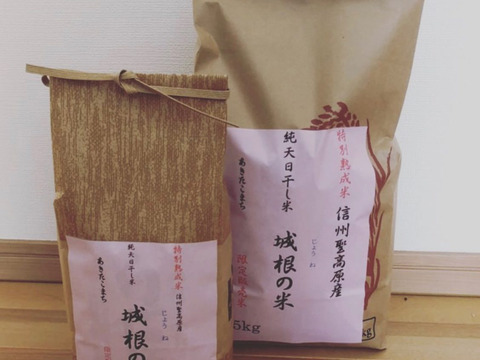 特別熟成米
信州聖高原産
純天日干し米
じょうね
城根の米
あきたこまち
限定販売米
5kg
kg
特別熟成米
信州聖高原産
純天日干し米
じょうね
城根の
あきたこまち